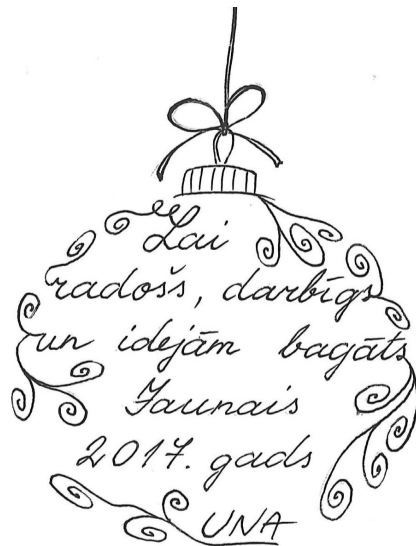 Lai
radošs, darbīgs
un idejām bagāts
Jaunais
2017. gads
UNA